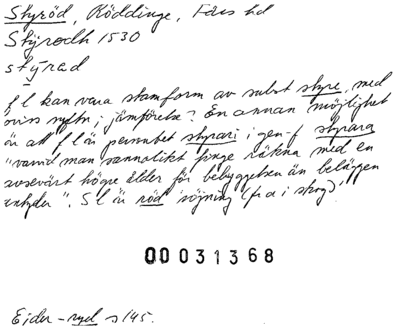 Styröd, Röddinge, Färs hd
Styrodh 1530
stýrad
f l kan vara stamform av subst styre, med
oviss syftn i jämförelse? En annan möjlighet
är att f l är personbet styrari i gen-f styrara
"varvid man sannolikt finge räkna med en
avsevärt högre ålder för bebyggelsen än beläggen
antyder". S l är röd 'röjning (fr a i skog)'
00031368
Eider-ryd s 145.